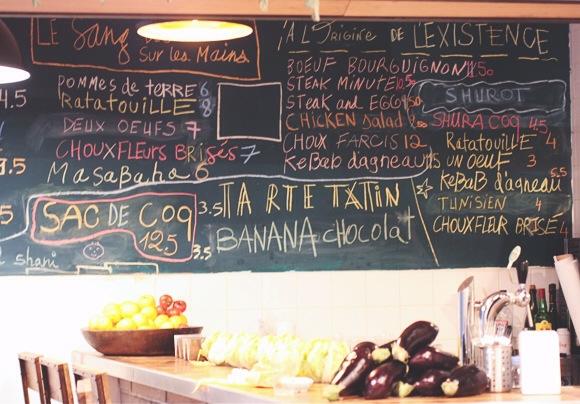 Le Sang
Sur les Mains
4.5
POMMES de TERRE 6
Ratatouille 8
DEUX OEUFS 7
CHOUXFLEURS BRISÉS 7
3.5
Masabaha 6
5
SAC DE COQ
12.5
shani
3.5 TARTE TATIN
BANANA chocolat
3.5
À L'ORIGINE DE L'EXISTENCE
BOEUF BOURGUIGNON
STEAK MINUTE
Steak and EGG
CHICKEN salad
CHOUX FARCIS 12
KeBaB dagneau
SHUROT
SHURA COQ 4.5
Ratatouille 4
UN OEUF 3
KeBaB d'agneau 5.5
TUNISIEN 4
CHOUXFLEUR BRISÉ 4